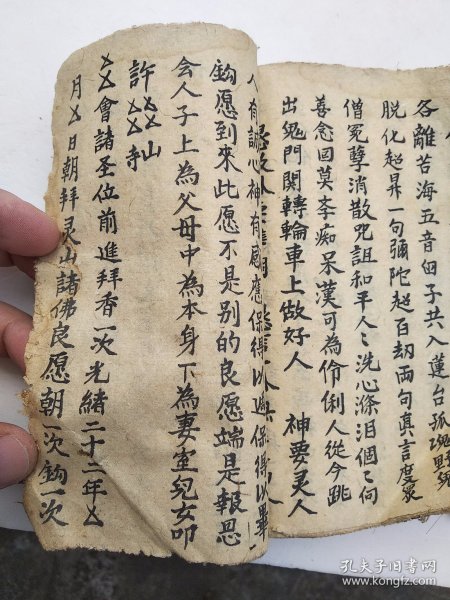 各離苦海五音子共入蓮台孤魂野鬼
脱化超昇一句彌陀超百劫両句真言度眾
僧冤孽消散咒詛和平人〻洗心滌泪個〻向
善念因莫李痴呆漢可為伶俐人從今跳
出鬼門関轉輪車上做好人 神要灵人
人有誠心神有感應保得以過保得以畢
鈎愿到來此愿不是别的良愿端是報恩
会人子上為父母中為本身下為妻室兒女叩
許厶厶山
厶厶寺
厶會諸圣位前進拜香一次光緒二十二年厶
月厶日朝拜灵山諸佛良愿朝一次鈎一次
孔夫子旧书网
www.kongfz.com